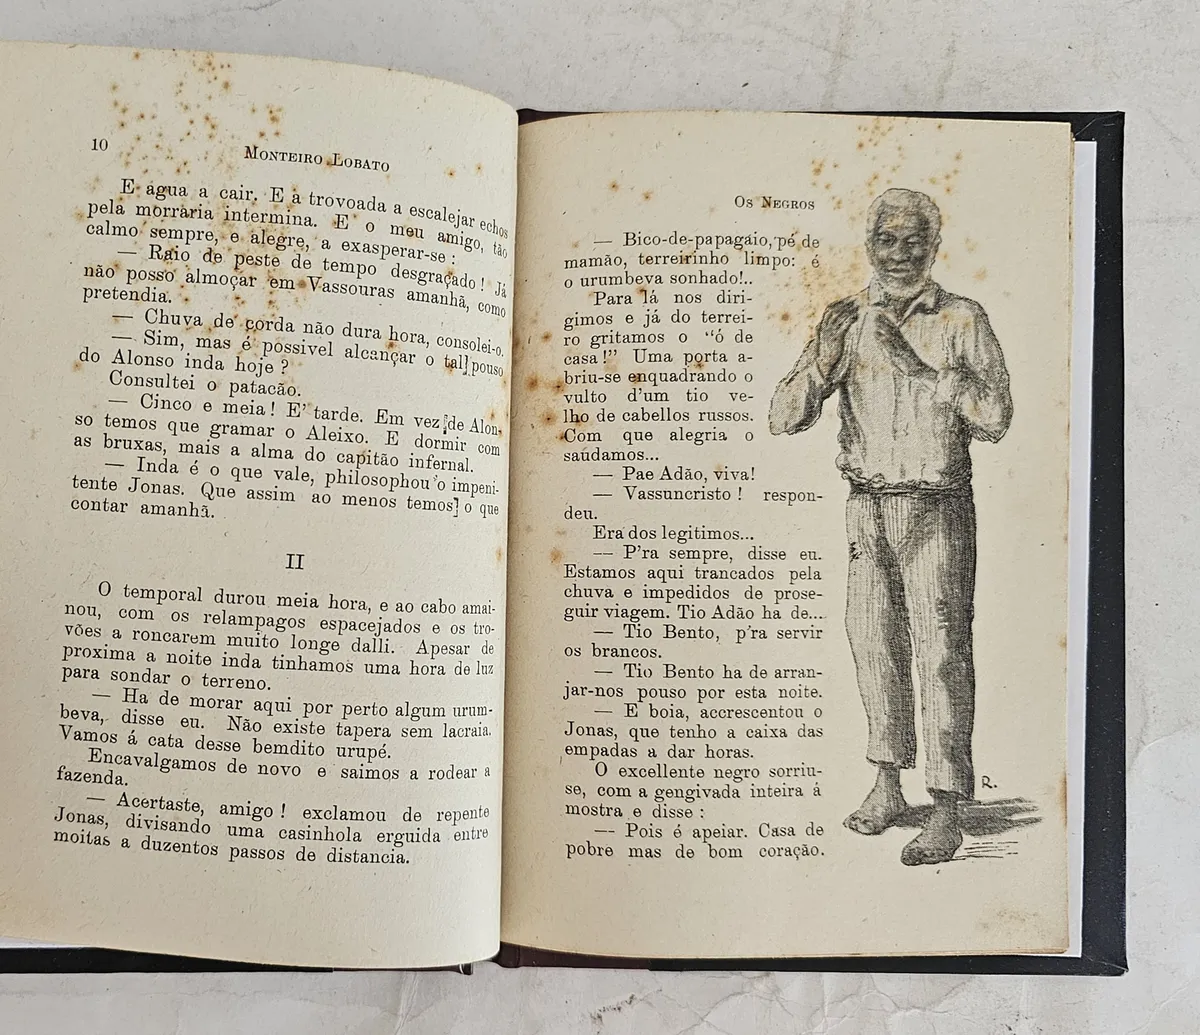 10
MONTEIRO LOBATO
E agua a cair. E a trovoada a escalejar echos
pela morraria intermina. E o meu amigo, tão
calmo sempre, e alegre, a exasperar-se :
— Raio de peste de tempo desgraçado ! Já
não posso almoçar em Vassouras amanhã, como
pretendia.
— Chuva de corda não dura hora, consolei-o.
— Sim, mas é possivel alcançar o tal pouso
do Alonso inda hoje ?
Consultei o patacão.
— Cinco e meia ! E' tarde. Em vez de Alon-
so temos que gramar o Aleixo. E dormir com
as bruxas, mais a alma do capitão infernal.
— Inda é o que vale, philosophou o impeni-
tente Jonas. Que assim ao menos temos o que
contar amanhã.
II
O temporal durou meia hora, e ao cabo amai-
nou, com os relampagos espacejados e os tro-
vões a roncarem muito longe dalli. Apesar de
proxima a noite inda tinhamos uma hora de luz
para sondar o terreno.
— Ha de morar aqui por perto algum urum-
beva, disse eu. Não existe tapera sem lacraia.
Vamos á cata desse bemdito urupé.
Encavalgamos de novo e saimos a rodear a
fazenda.
— Acertaste, amigo ! exclamou de repente
Jonas, divisando uma casinhola erguida entre
moitas a duzentos passos de distancia.
OS NEGROS
— Bico-de-papagaio, pé de
mamão, terreirinho limpo: é
o urumbeva sonhado!..
Para lá nos diri-
gimos e já do terrei-
ro gritamos o “ó de
casa!” Uma porta a-
briu-se enquadrando o
vulto d'um tio ve-
lho de cabellos russos.
Com que alegria o
saúdamos...
— Pae Adão, viva!
— Vassuncristo ! respon-
deu.
Era dos legitimos...
— P'ra sempre, disse eu.
Estamos aqui trancados pela
chuva e impedidos de prose-
guir viagem. Tio Adão ha de...
— Tio Bento, p'ra servir
os brancos.
— Tio Bento ha de arran-
jar-nos pouso por esta noite.
— E boia, accrescentou o
Jonas, que tenho a caixa das
empadas a dar horas.
O excellente negro sorriu-
se, com a gengivada inteira á
mostra e disse :
— Pois é apeiar. Casa de
pobre mas de bom coração.
R.